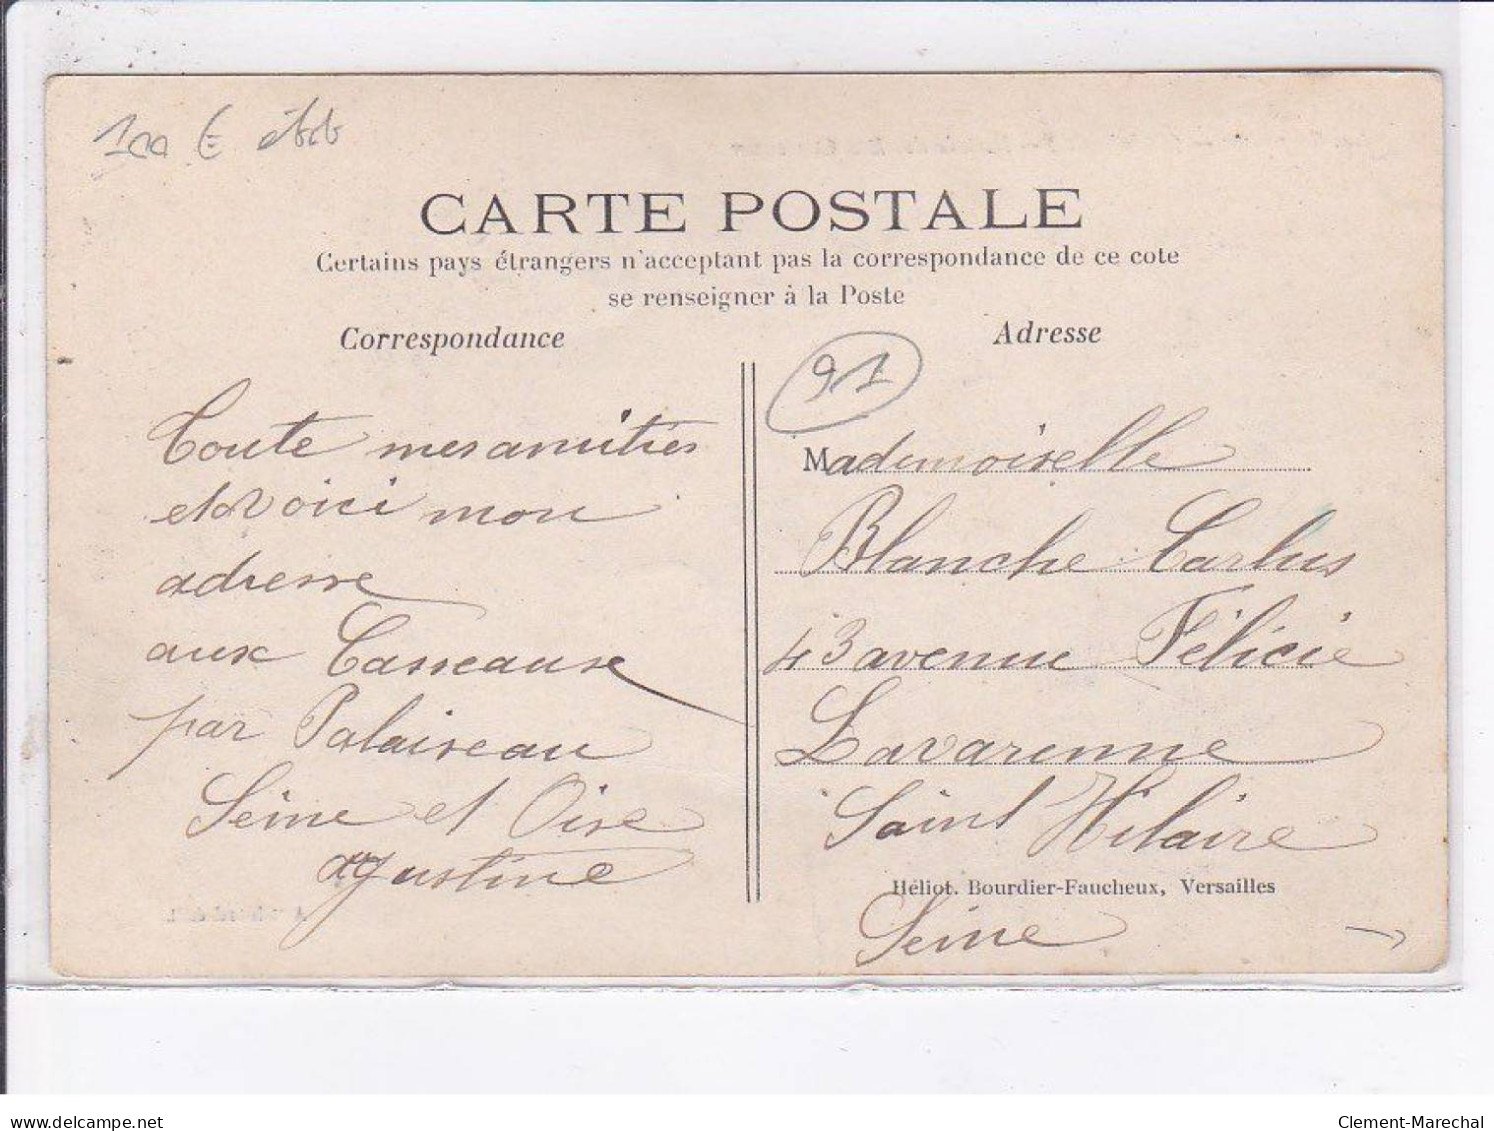 100 €
CARTE POSTALE
Certains pays étrangers n'acceptant pas la correspondance de ce cote
se renseigner à la Poste
Correspondance
Toute mes amitiés
et voici mon
adresse
aux Casseaux
par Palaiseau
Seine et Oise
agustine
Adresse
91
Mademoiselle
Blanche Carlus
43 avenue Félicie
Lavarenne
Saint Hilaire
Héliot. Bourdier-Faucheux, Versailles
Seine
delcampe.net
Clement-Marechal